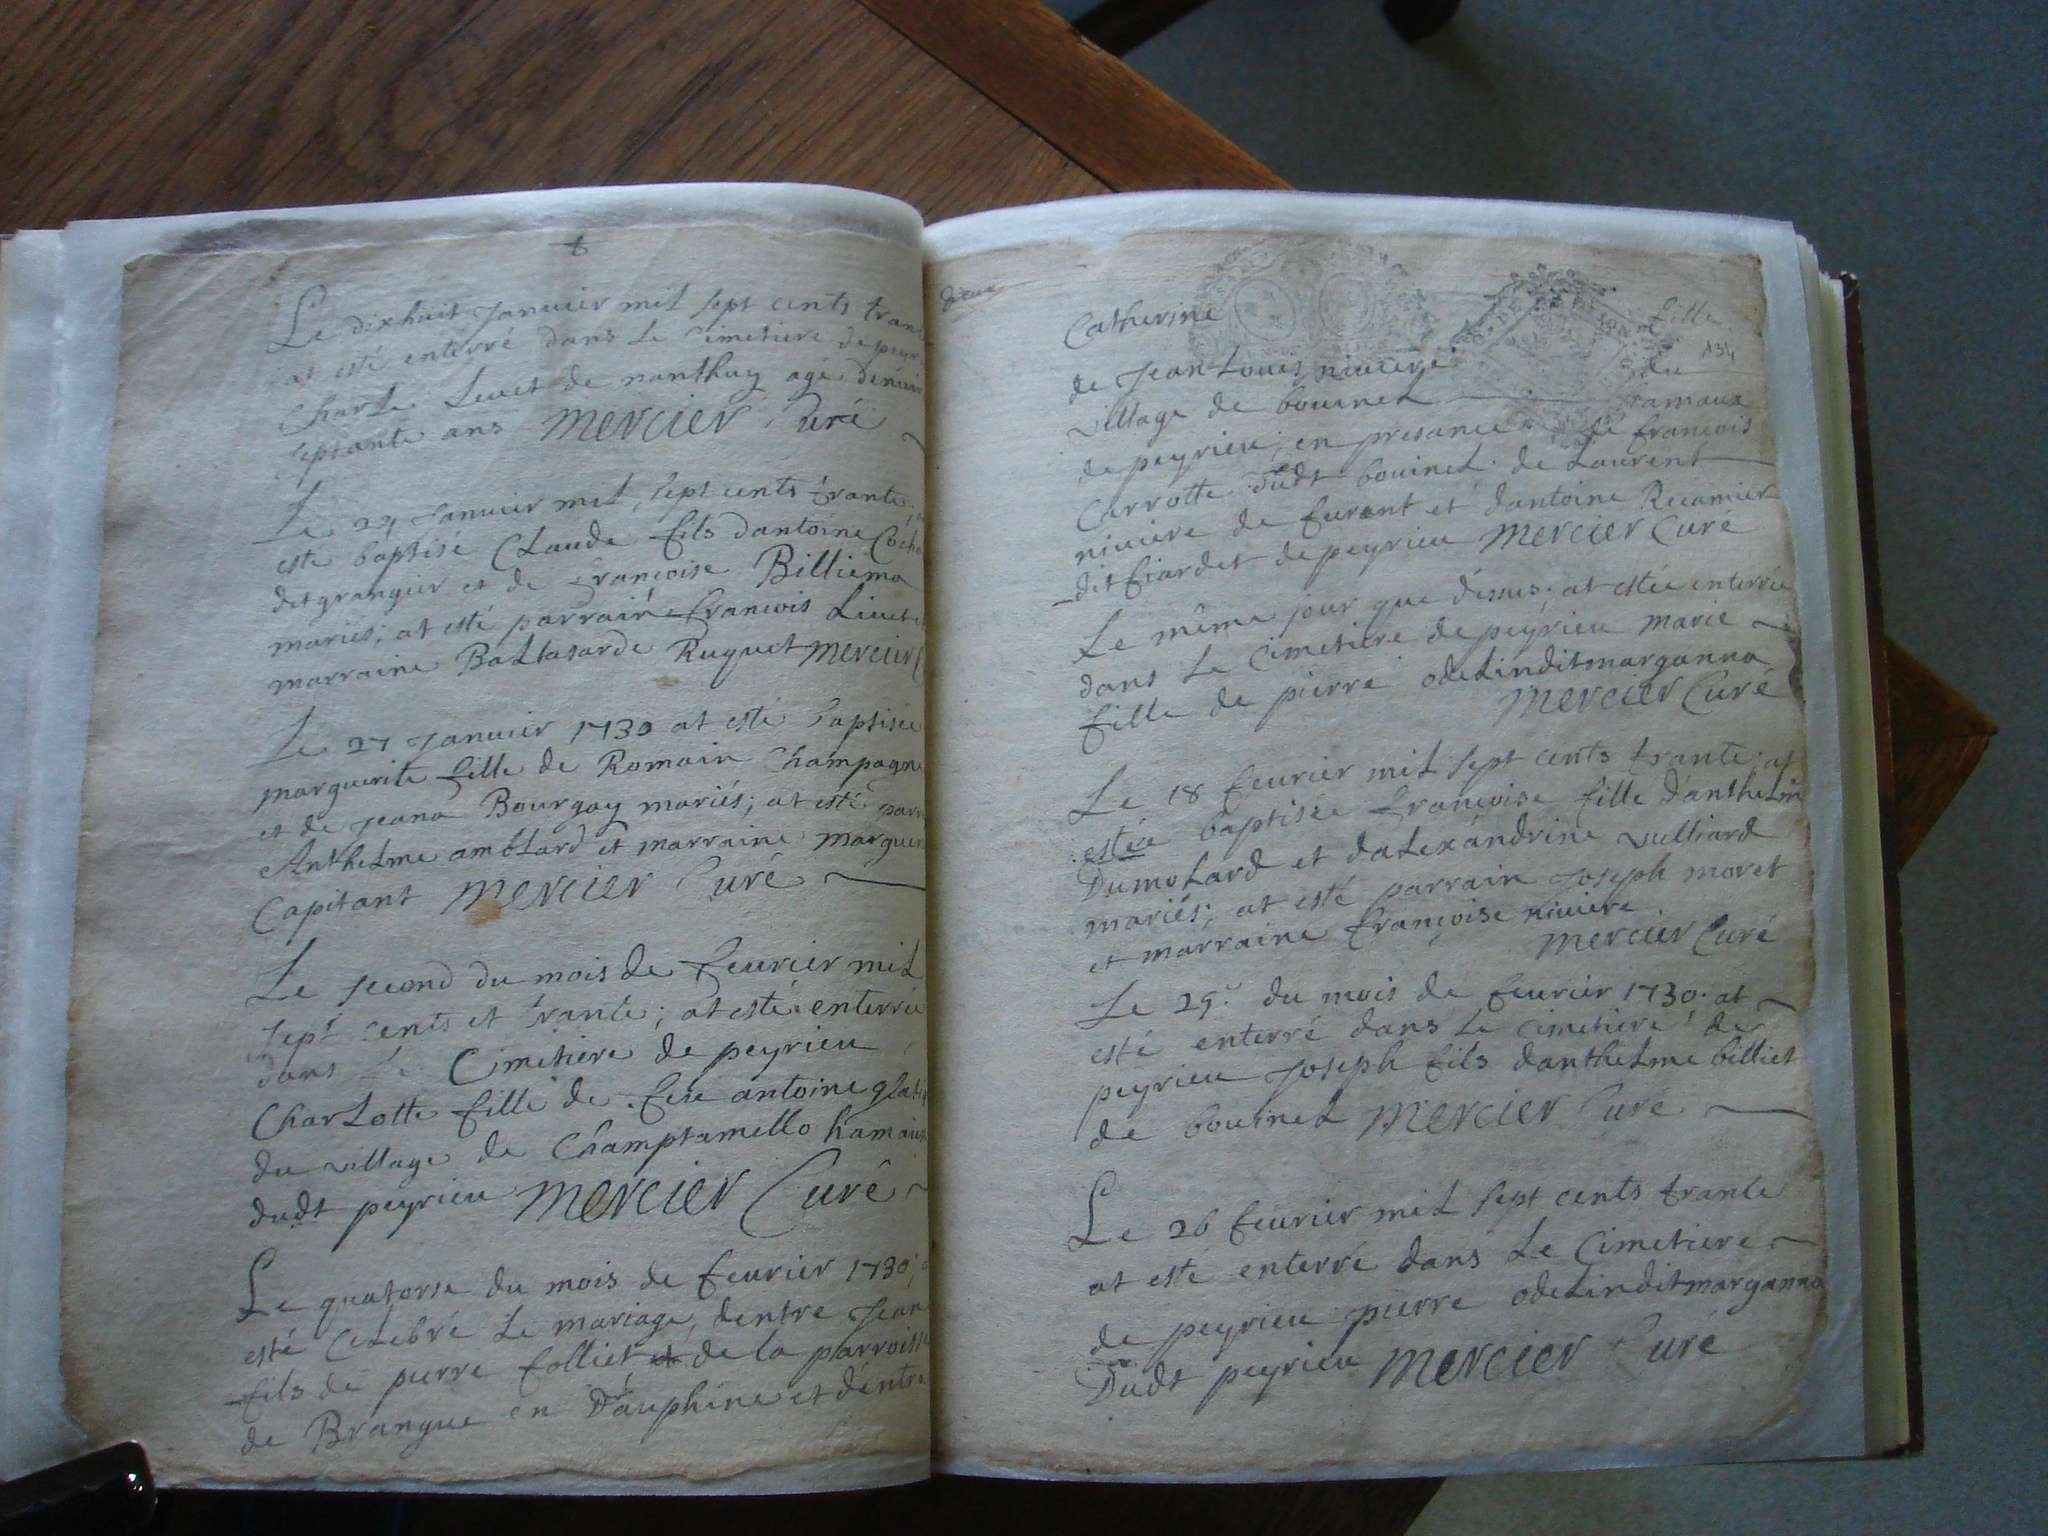 Le dixhuit Janvier mil sept cents tran
at esté enterré dans Le Cimetiere de peyr
Charle Levet de nanthuy agé denvir
septante ans Mercier Curé
Le 24 Janvier mil sept cents trante;
esté baptisé Claude fils dantoine Coche
dit grangier et de françoise Billiema
mariés; at esté parrain francois Livet et
marraine Baltasarde Ruguet Mercier C
Le 27 Janvier 1730 at esté baptisée
marguerite fille de Romain Champagne
et de Jeana Bourgay mariés; at esté parr
Anthelme amblard et marraine marguer
Capitant Mercier Curé
Le second du mois de feurier mil
sept cents et trante; at esté enterrée
dans Le Cimetiere de peyrieu
Charlotte fille de feu antoine glati
du village de Champtamello hamaux
dudt peyrieu Mercier Curé
Le quatorse du mois de feurier 1730; a
esté Celebré Le mariage, dentre Jean
fils de pierre folliet de la parroisse
de Brangue en Dauphine et déntre
Catherine fille
134
de Jean Louis riviere du
village de bouinel hamaux
de peyrieu; en presance de françois
Carrotte dudt bouinel; de Laurent
riviere de furant et dantoine Recamier
dit fiardet de peyrieu Mercier Curé
Le même jour que déssus; at estée enterrée
dans Le Cimetiere de peyrieu marie
fille de pierre odelindit marganna
Mercier Curé
Le 18 feurier mil sept cents trante; at
estée baptisée françoise fille danthelme
Dumolard et dalexandrine vulliard
mariés; at esté parrain Joseph moret
et marraine françoise riviere
Mercier Curé
Le 25e du mois de feurier 1730. at
esté enterré dans Le cimetiere de
peyrieu Joseph fils danthelme billiet
de bouinel Mercier Curé
Le 26 feurier mil sept cents trante
at esté enterré dans Le Cimetiere
de peyrieu pierre odelindit marganna
Dudt peyrieu Mercier Curé